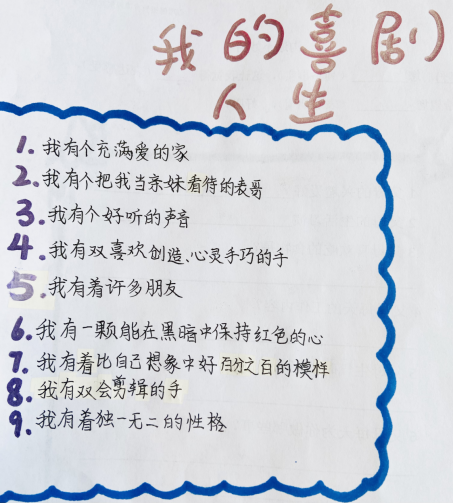 我的喜剧
人生
1.我有个充满爱的家
2.我有个把我当亲妹看待的表哥
3.我有个好听的声音
4.我有双喜欢创造、心灵手巧的手
5.我有着许多朋友
6.我有一颗能在黑暗中保持红色的心
7.我有着比自己想象中好百分之百的模样
8.我有双会剪辑的手
9.我有着独一无二的性格